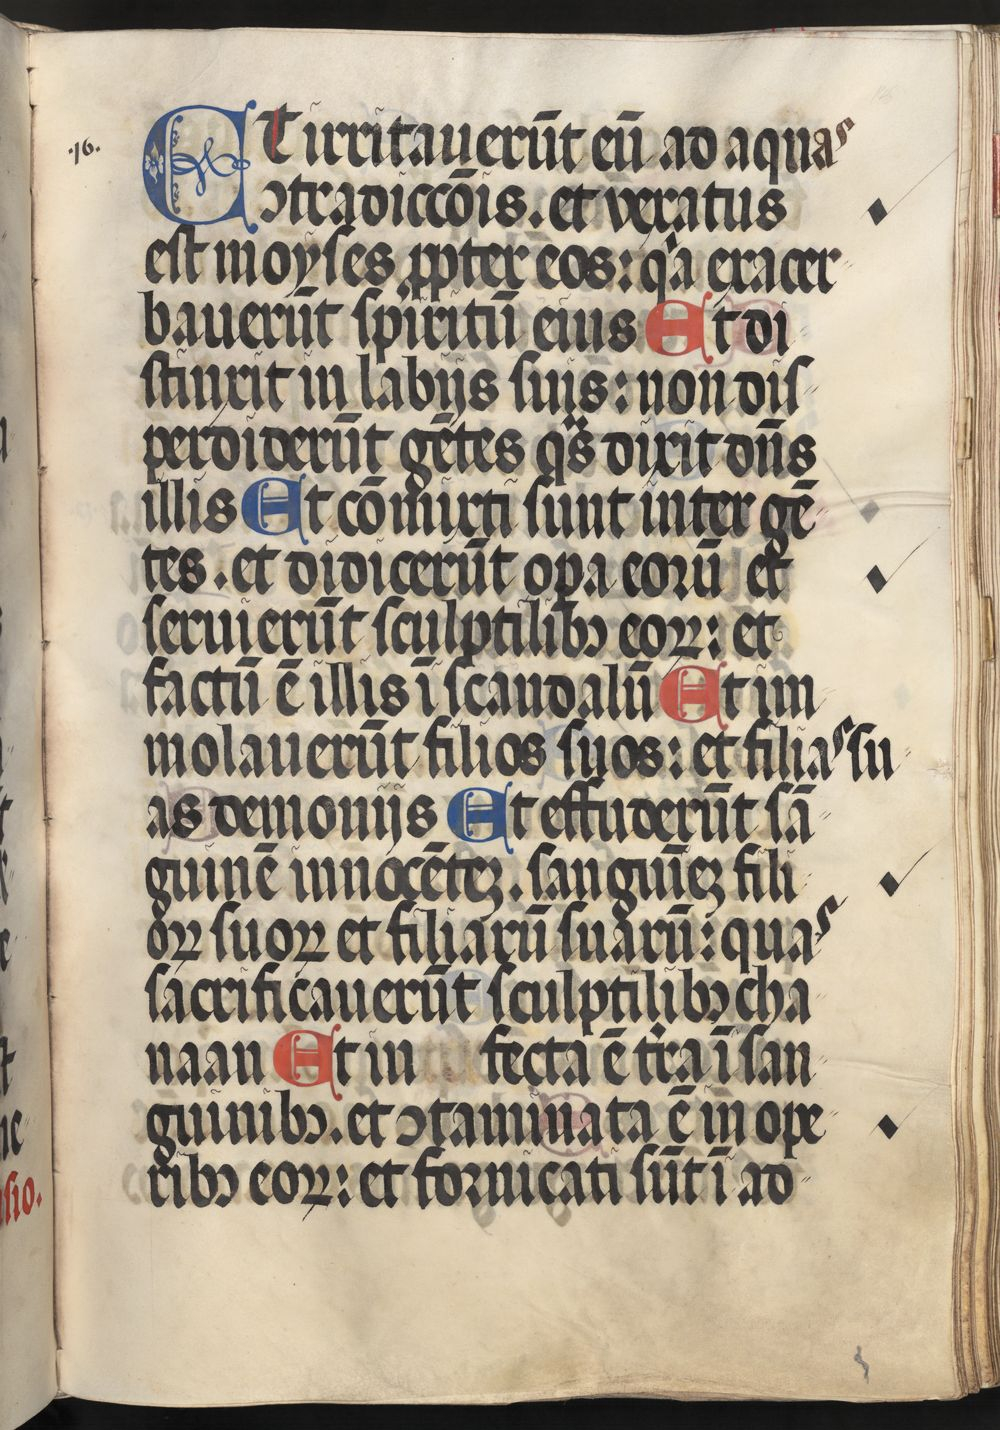 ·16·
ET irritauerūt eū ad aquas
ↄtradiccōis. et vexatus
est moyses ꝓpter eos: q̓a exacer
bauerūt spiritū eius Et di
stinxit in labijs suis: non dis
perdiderūt gētes q̈s dixit dn̄s
illis Et cōmixti sunt inter gē
tes. et didicerūt oꝑa eoꝛū et
seruierūt sculptilibꝫ eoꝝ: et
factū ē illis ī scandalū Et im
molauerūt filios suos: et filias su
as demonijs Et effuderūt sā
guinē innocēteꝫ. sanguīeꝫ fili
oꝝ suoꝝ et filiarū suarū: quas
sacrificauerūt sculptilibꝫ cha
naan Et in fecta ē tr̄a ī san
guinibꝫ. et ↄtaminata ē in ope
ribꝫ eoꝝ: et foꝛnicati sūt ī ad
sio.